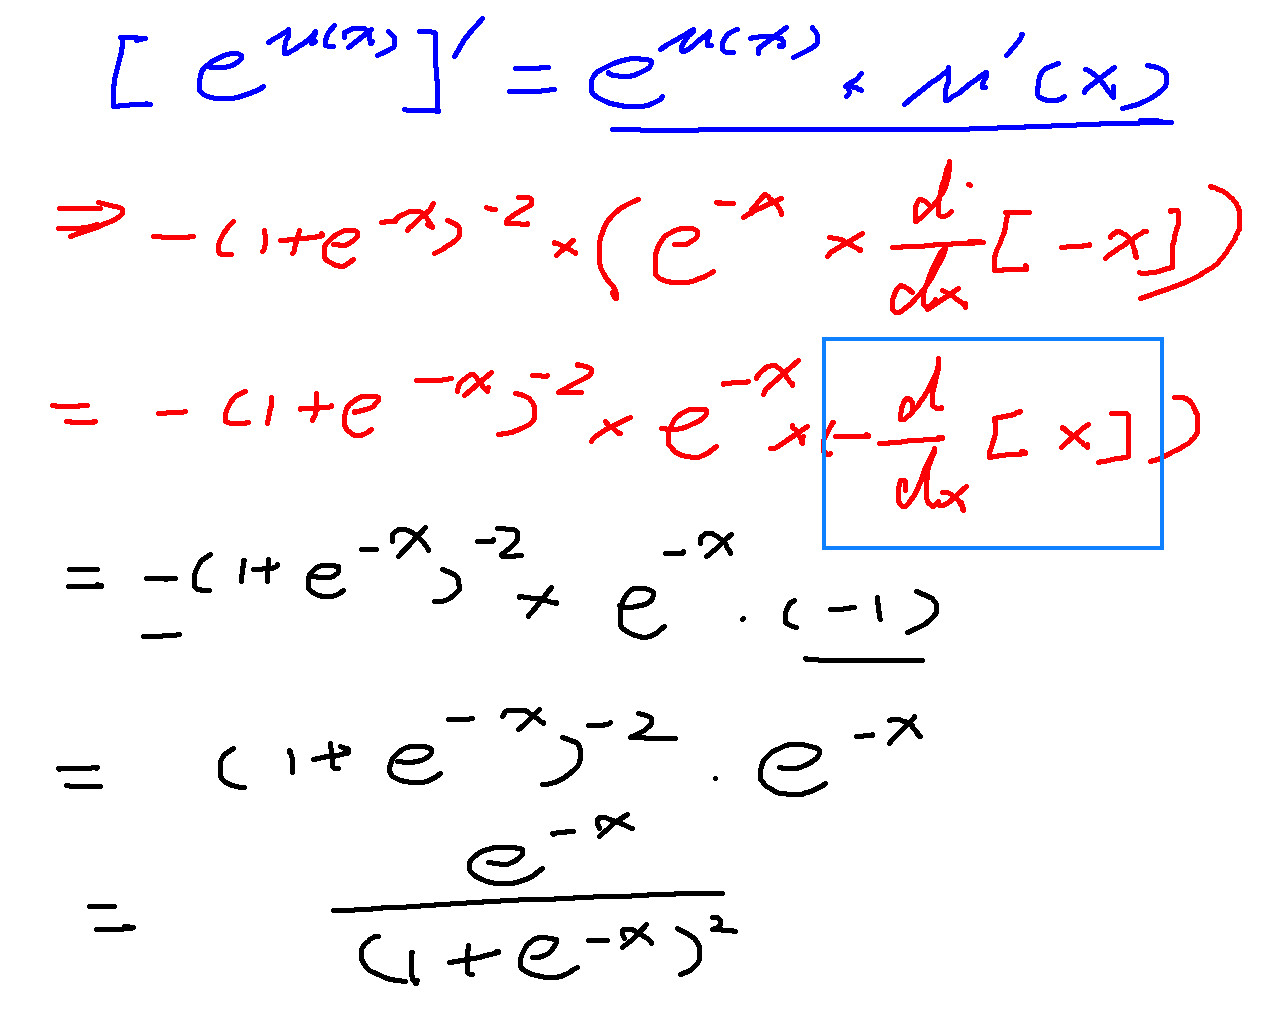 [e^{u(x)}]' = e^{u(x)} · u'(x)
⇒ -(1+e^{-x})^{-2} × (e^{-x} × d/dx [-x])
= -(1+e^{-x})^{-2} × e^{-x} × (-d/dx [x])
= -(1+e^{-x})^{-2} × e^{-x} · (-1)
= (1+e^{-x})^{-2} · e^{-x}
= e^{-x} / (1+e^{-x})^2